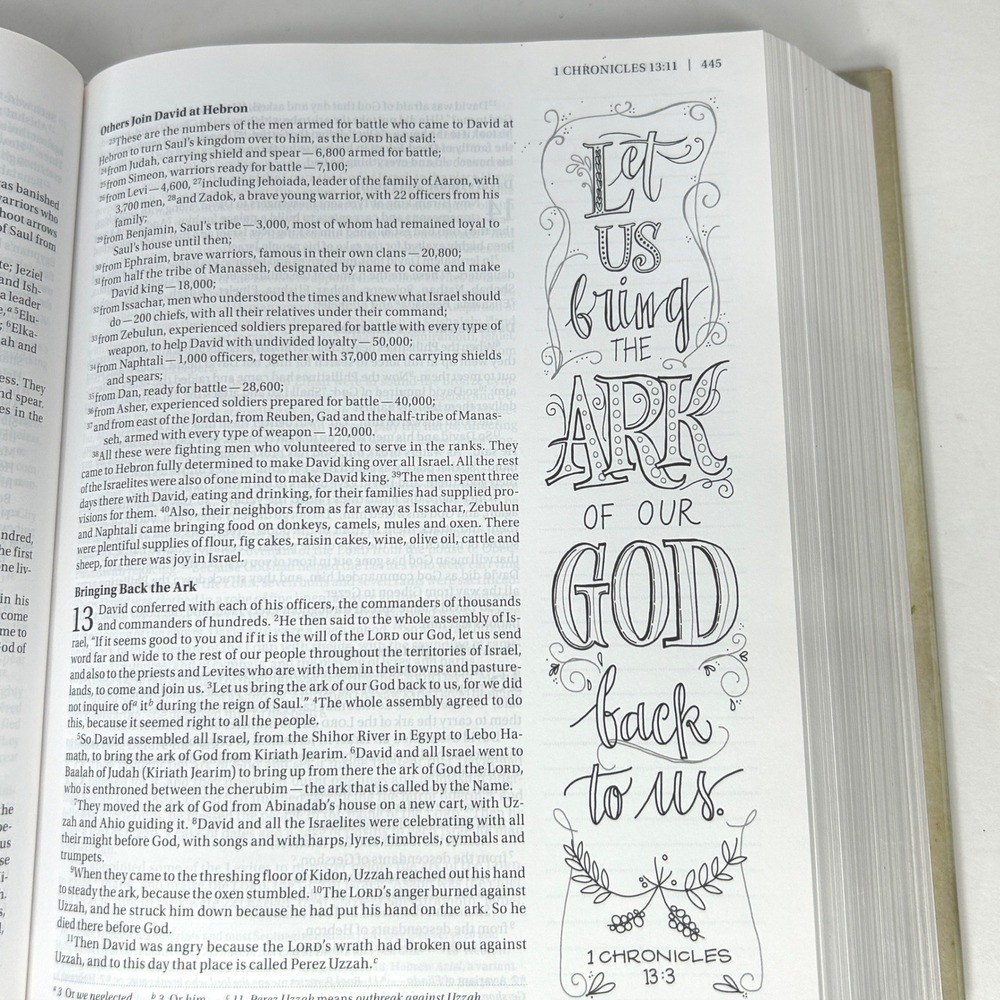 1 CHRONICLES 13:11 | 445
Others Join David at Hebron
23These are the numbers of the men armed for battle who came to David at
Hebron to turn Saul's kingdom over to him, as the LORD had said:
24from Judah, carrying shield and spear — 6,800 armed for battle;
25from Simeon, warriors ready for battle — 7,100;
26from Levi — 4,600, 27including Jehoiada, leader of the family of Aaron, with
3,700 men, 28and Zadok, a brave young warrior, with 22 officers from his
family;
29from Benjamin, Saul's tribe — 3,000, most of whom had remained loyal to
Saul's house until then;
30from Ephraim, brave warriors, famous in their own clans — 20,800;
31from half the tribe of Manasseh, designated by name to come and make
David king — 18,000;
32from Issachar, men who understood the times and knew what Israel should
do — 200 chiefs, with all their relatives under their command;
33from Zebulun, experienced soldiers prepared for battle with every type of
weapon, to help David with undivided loyalty — 50,000;
34from Naphtali — 1,000 officers, together with 37,000 men carrying shields
and spears;
35from Dan, ready for battle — 28,600;
36from Asher, experienced soldiers prepared for battle — 40,000;
37and from east of the Jordan, from Reuben, Gad and the half-tribe of Manas-
seh, armed with every type of weapon — 120,000.
38All these were fighting men who volunteered to serve in the ranks. They
came to Hebron fully determined to make David king over all Israel. All the rest
of the Israelites were also of one mind to make David king. 39The men spent three
days there with David, eating and drinking, for their families had supplied pro-
visions for them. 40Also, their neighbors from as far away as Issachar, Zebulun
and Naphtali came bringing food on donkeys, camels, mules and oxen. There
were plentiful supplies of flour, fig cakes, raisin cakes, wine, olive oil, cattle and
sheep, for there was joy in Israel.
Bringing Back the Ark
13 David conferred with each of his officers, the commanders of thousands
and commanders of hundreds. 2He then said to the whole assembly of Is-
rael, "If it seems good to you and if it is the will of the LORD our God, let us send
word far and wide to the rest of our people throughout the territories of Israel,
and also to the priests and Levites who are with them in their towns and pasture-
lands, to come and join us. 3Let us bring the ark of our God back to us, for we did
not inquire ofa itb during the reign of Saul." 4The whole assembly agreed to do
this, because it seemed right to all the people.
5So David assembled all Israel, from the Shihor River in Egypt to Lebo Ha-
math, to bring the ark of God from Kiriath Jearim. 6David and all Israel went to
Baalah of Judah (Kiriath Jearim) to bring up from there the ark of God the LORD,
who is enthroned between the cherubim — the ark that is called by the Name.
7They moved the ark of God from Abinadab's house on a new cart, with Uz-
zah and Ahio guiding it. 8David and all the Israelites were celebrating with all
their might before God, with songs and with harps, lyres, timbrels, cymbals and
trumpets.
9When they came to the threshing floor of Kidon, Uzzah reached out his hand
to steady the ark, because the oxen stumbled. 10The LORD's anger burned against
Uzzah, and he struck him down because he had put his hand on the ark. So he
died there before God.
11Then David was angry because the LORD's wrath had broken out against
Uzzah, and to this day that place is called Perez Uzzah.c
a3 Or we neglected b3 Or him c11 Perez Uzzah means outbreak against Uzzah
Let
US
bring
THE
ARK
OF OUR
GOD
back
to us.
1 CHRONICLES
13:3
as banished
arriors who
hoot arrows
of Saul from
te; Jeziel
and Ish-
a leader
5Elu-
6Elka-
ah and
ess. They
nd spear.
es in the
ndred,
he first
ne liv-
in his
come
me to
od of